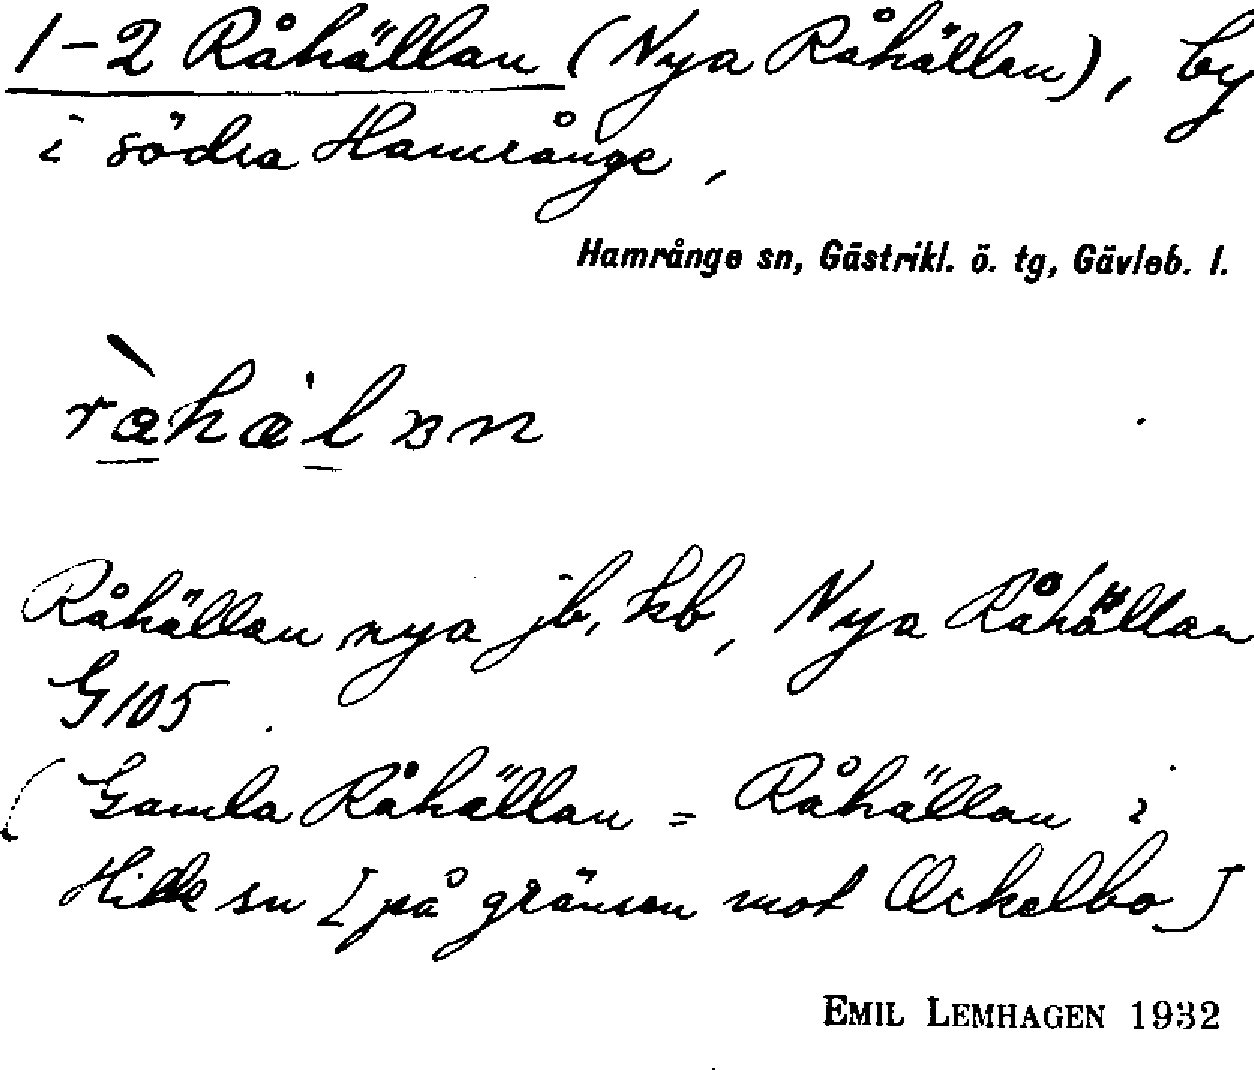 1-2 Råhällan (Nya Råhällan), by
i södra Hamrånge,
Hamrånge sn, Gästrikl. ö. tg, Gävleb. l.
Råhällan nya jb, kb, Nya Råhällan
G 105.
(Gamla Råhällan = Råhällan i
Hille sn [på gränsen mot Ockelbo]
EMIL LEMHAGEN 1932